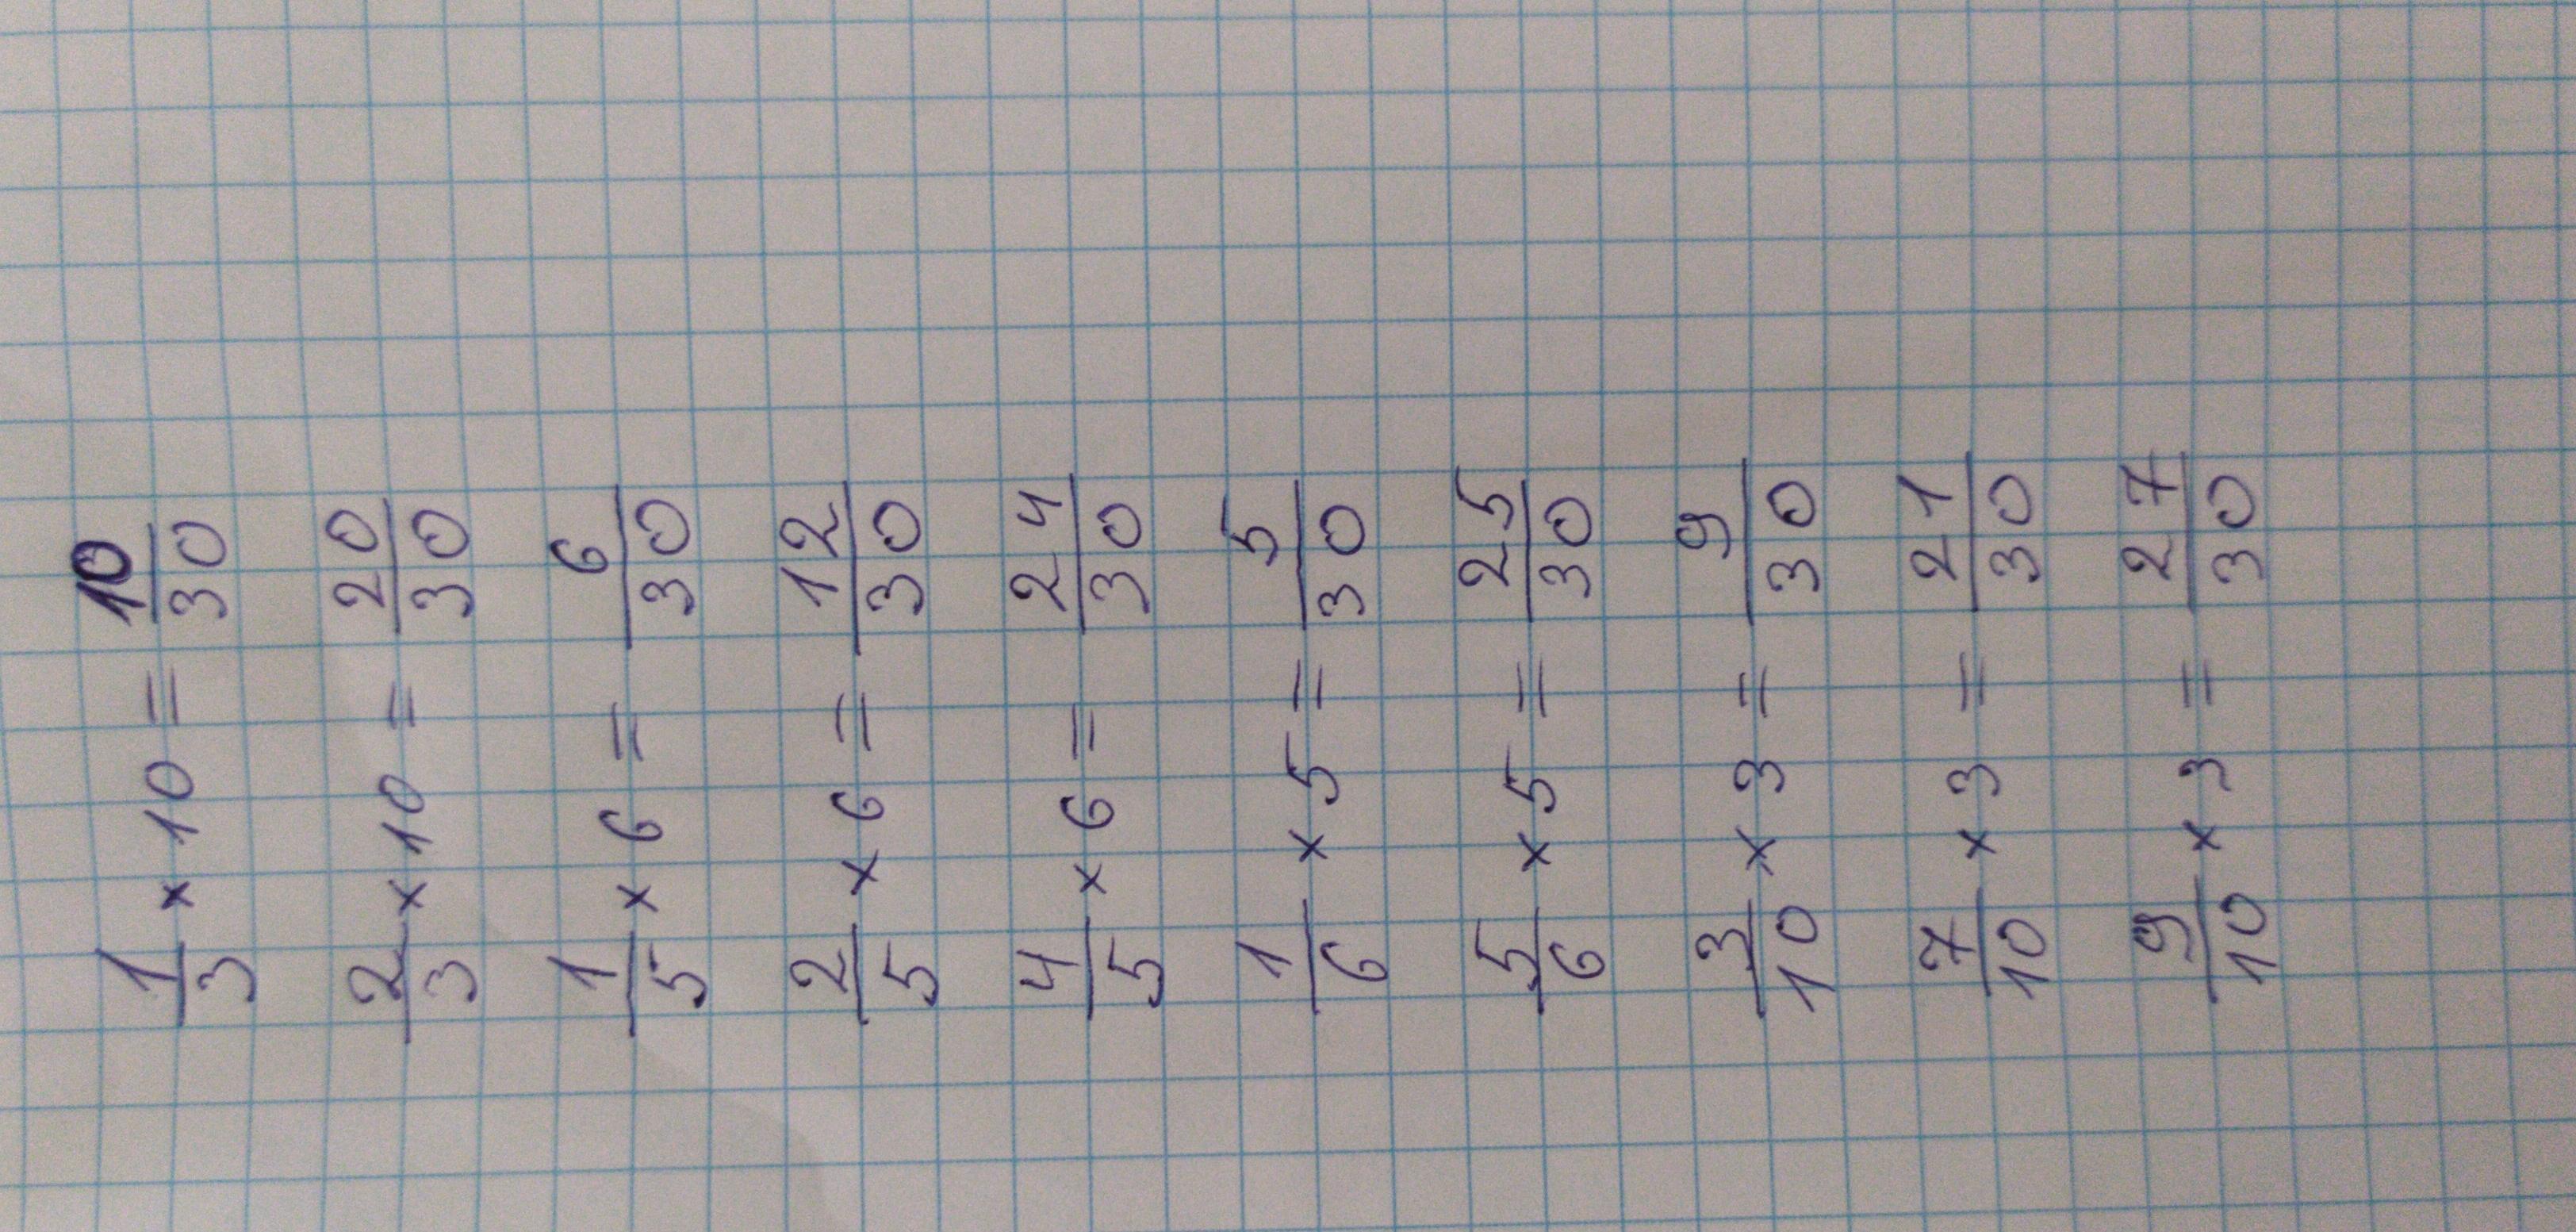 1/3 × 10 = 10/30
2/3 × 10 = 20/30
1/5 × 6 = 6/30
2/5 × 6 = 12/30
4/5 × 6 = 24/30
1/6 × 5 = 5/30
5/6 × 5 = 25/30
3/10 × 3 = 9/30
7/10 × 3 = 21/30
9/10 × 3 = 27/30